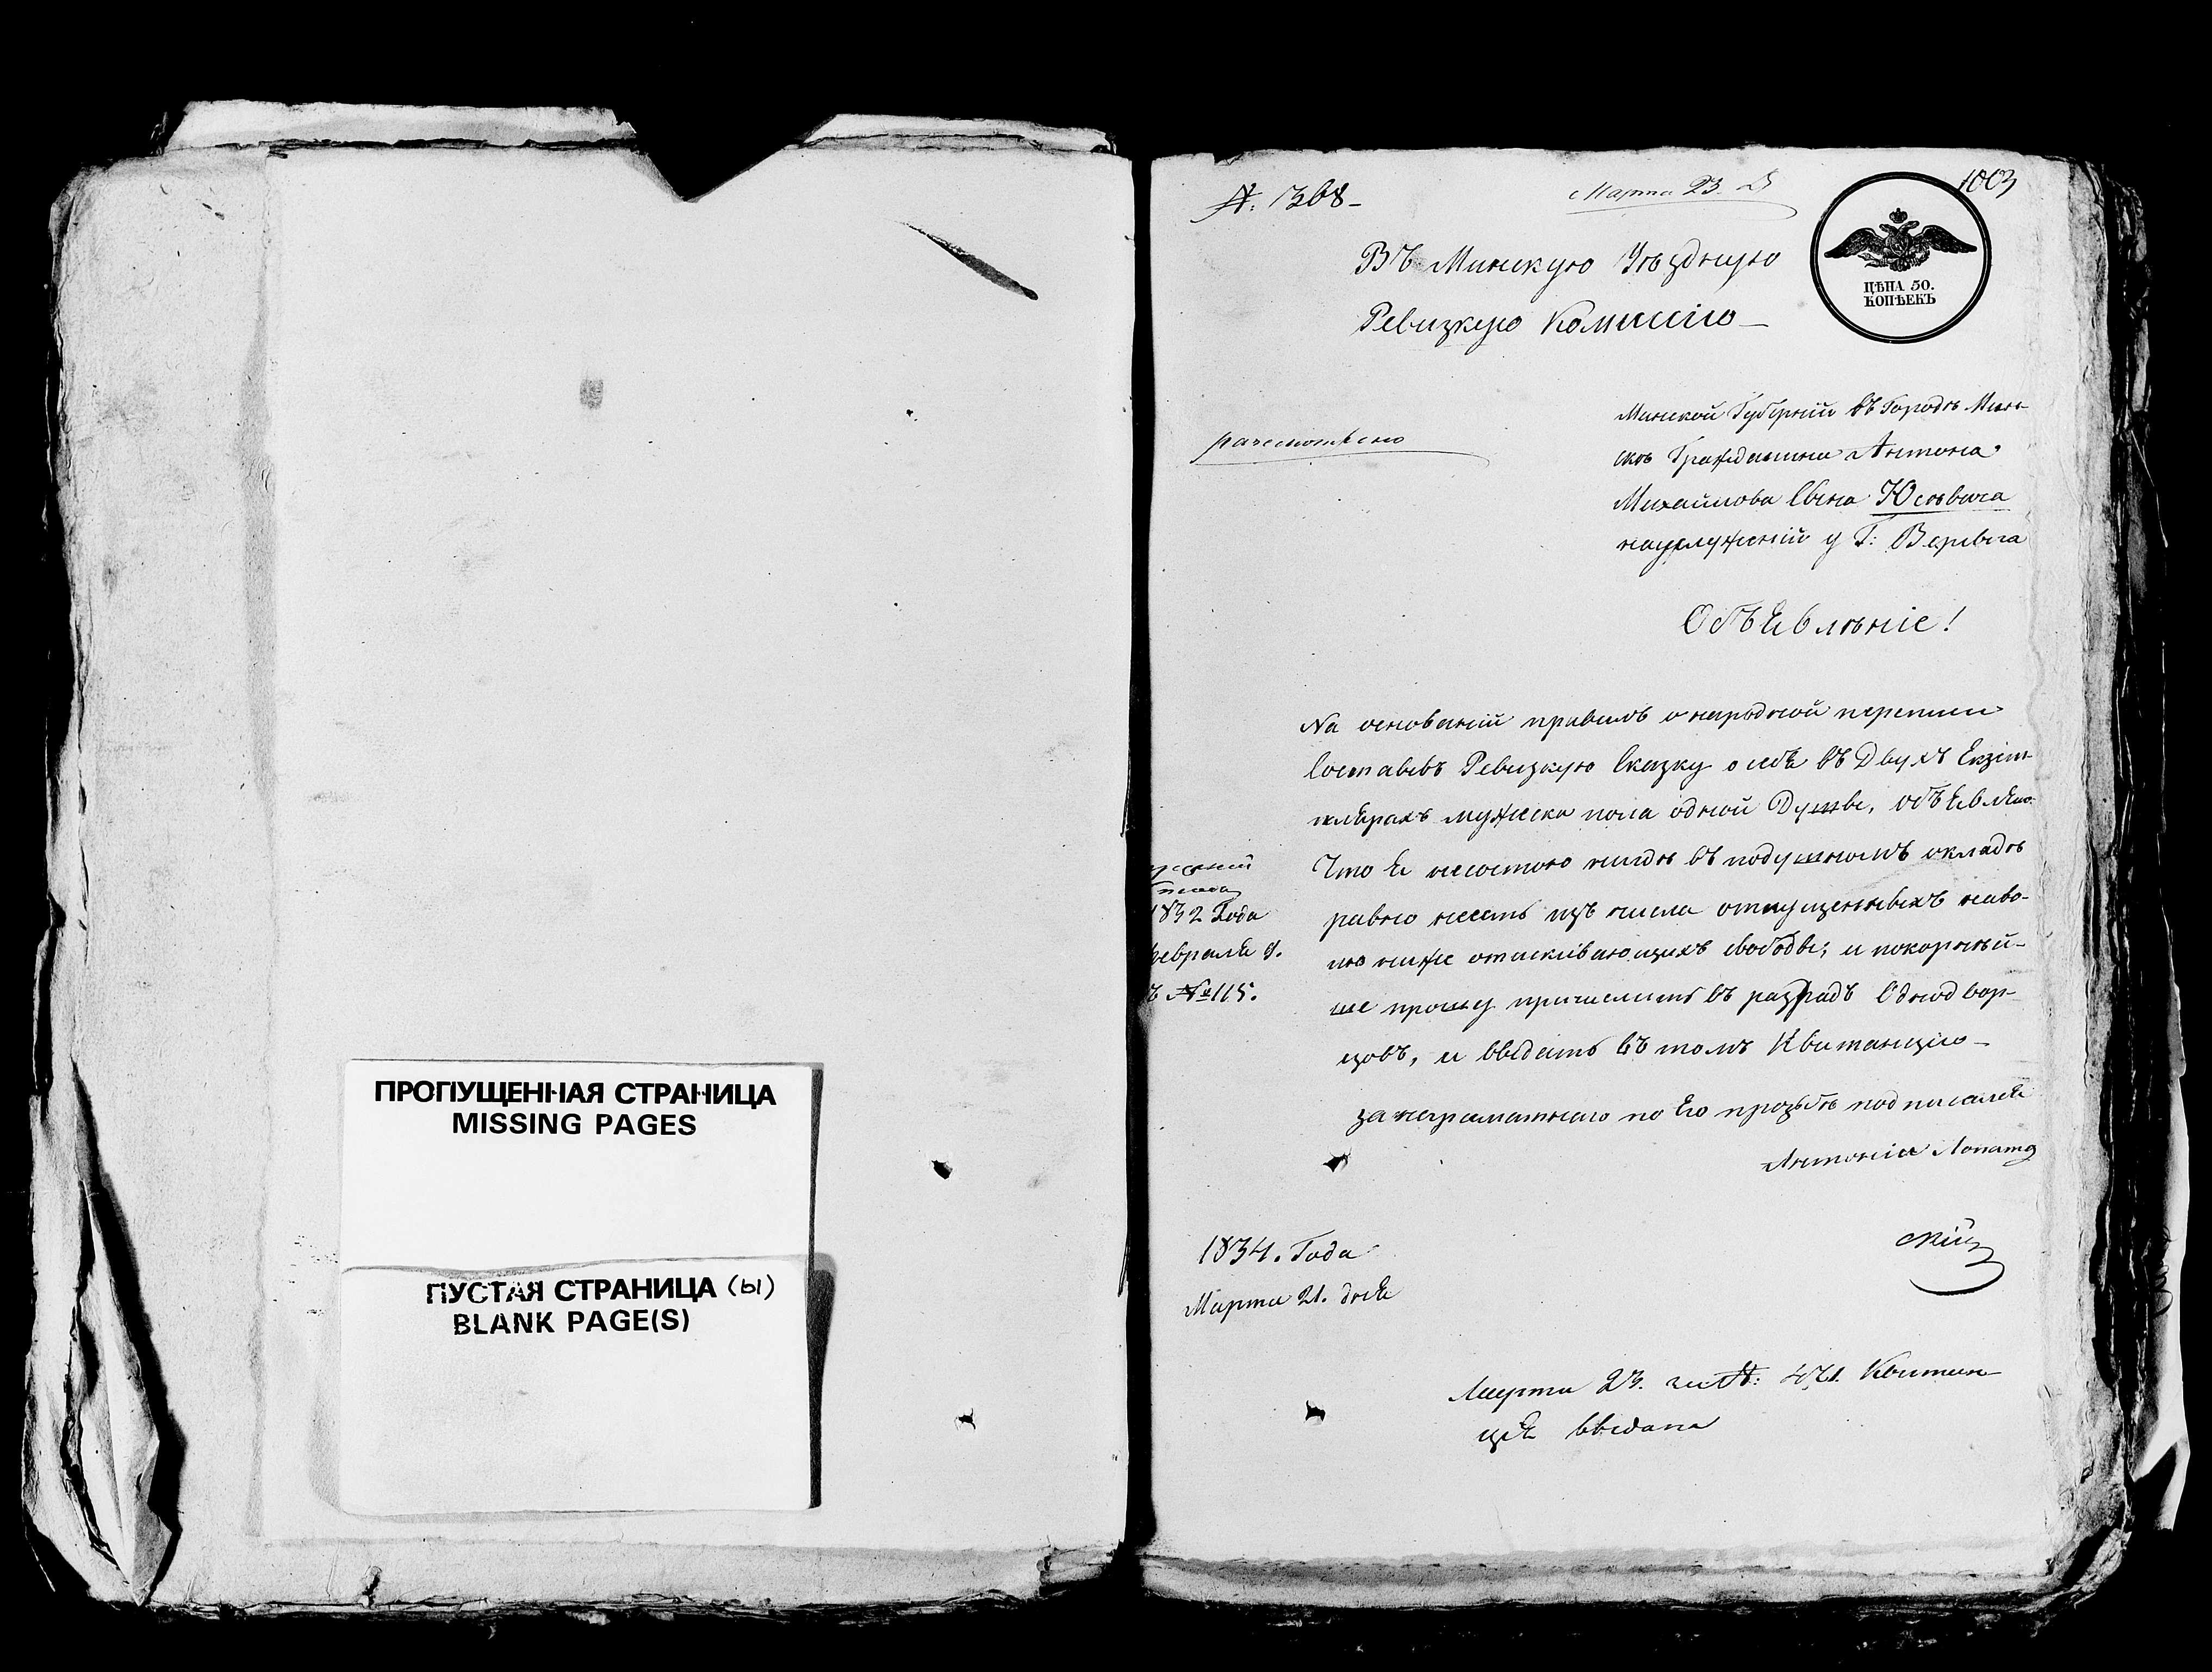 ПРОПУЩЕННАЯ СТРАНИЦА
MISSING PAGES
ПУСТАЯ СТРАНИЦА (ы)
BLANK PAGE(S)
№. 1368
Марта 23. Д
1003
Въ Минскую Уѣздную
Ревизкую Комиссію
ЦѢНА 50.
КОПѢЕКЪ
Минской Губерніи въ Городѣ Мин-
скѣ Гражданина Антона
Михайлова Сына Юсѣвича
науслуженій у Г:
разсмотрено
Объевлѣніе!
На основаній правилъ о народной переписи
Составивъ Ревизкую Сказку о себе въ Двухъ Екзем-
плерахъ мужеска пола одной Душы, объевлено
Что Е несостою нигдѣ въ подушномъ окладѣ
равно несмь изъ числа отпущенныхъ наво-
лю ниже отискивающихъ свободы; и покорнѣй-
ше прошу причислить въ разрядъ Однодвор-
цовъ, и выдать въ томъ Квитанцію
За неграматнаго по Его прозьбѣ подписался
Антоній Лопато
скій
1832 Года
февраля 9.
№ 115.
1834. Года
Марта 21. дня
Марта 23. за №: 421. Квитан
ція выдана